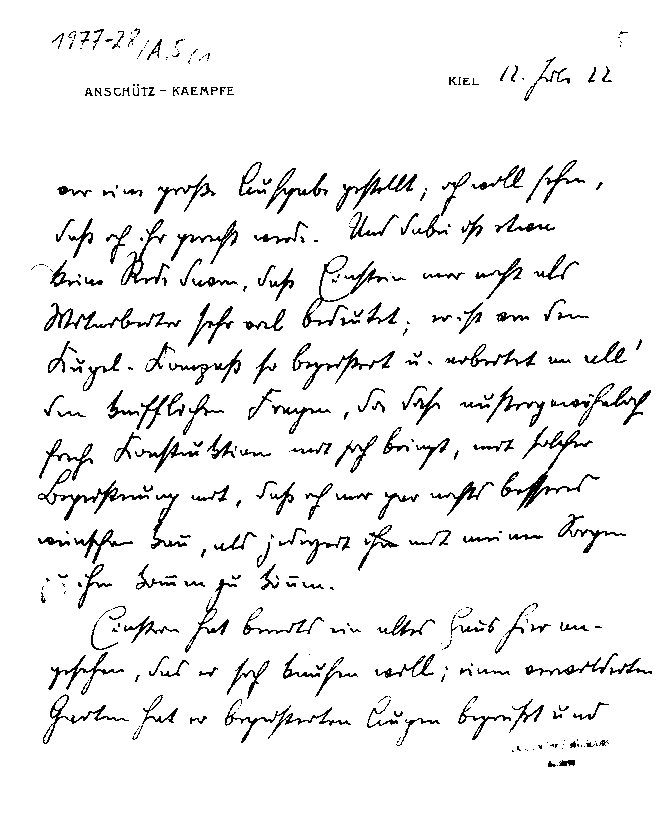 1977-28/A,5/1
5
ANSCHÜTZ – KAEMPFE
KIEL 12. Juli 22
vor eine große Aufgabe gestellt; ich will sehen,
daß ich ihr gerecht werde. Und dabei ist etwa
keine Rede davon, daß Einstein mir nicht als
Mitarbeiter sehr viel bedeutet; er ist von dem
Kugel-Kompaß so begeistert u. arbeitet an all'
den knifflichen Fragen, die diese außergewöhnlich
freche Konstruktion mit sich bringt, mit solcher
Begeisterung mit, daß ich mir gar nichts besseres
wünschen kann, als jederzeit mit meinen Sorgen
zu ihm kommen zu können.
Einstein hat bereits ein altes Haus hier an-
gesehen, das er sich kaufen will; einen verwilderten
Garten hat er begeisterten Augen begrüßt und